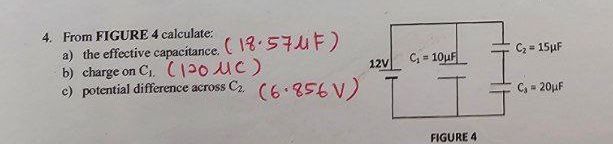 4. From FIGURE 4 calculate:
a) the effective capacitance. (18.57μF)
b) charge on C₁. (120 μC)
c) potential difference across C₂. (6.856 V)
12V
C₁ = 10μF
C₂ = 15μF
C₃ = 20μF
FIGURE 4